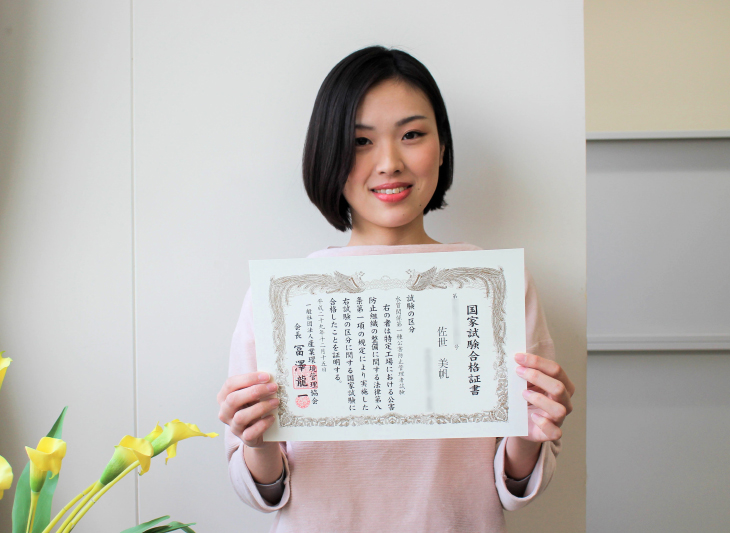 国家試験合格証書
第 号
佐世 美帆
試験の区分
水質関係第一種公害防止管理者試験
右の者は特定工場における公害
防止組織の整備に関する法律第八
条第一項の規定により実施した
右試験の区分に関する国家試験に
合格したことを証明する。
平成二十九年十二月十五日
一般社団法人産業環境管理協会
会長 冨澤龍一